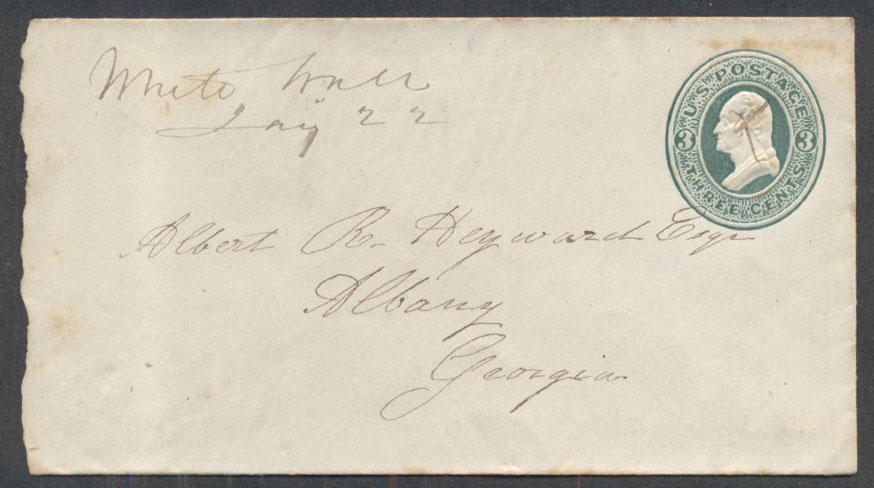 White
22
U.S. POSTAGE
3 3
THREE CENTS
Albert R. Heyward Esqr
Albany
Georgia